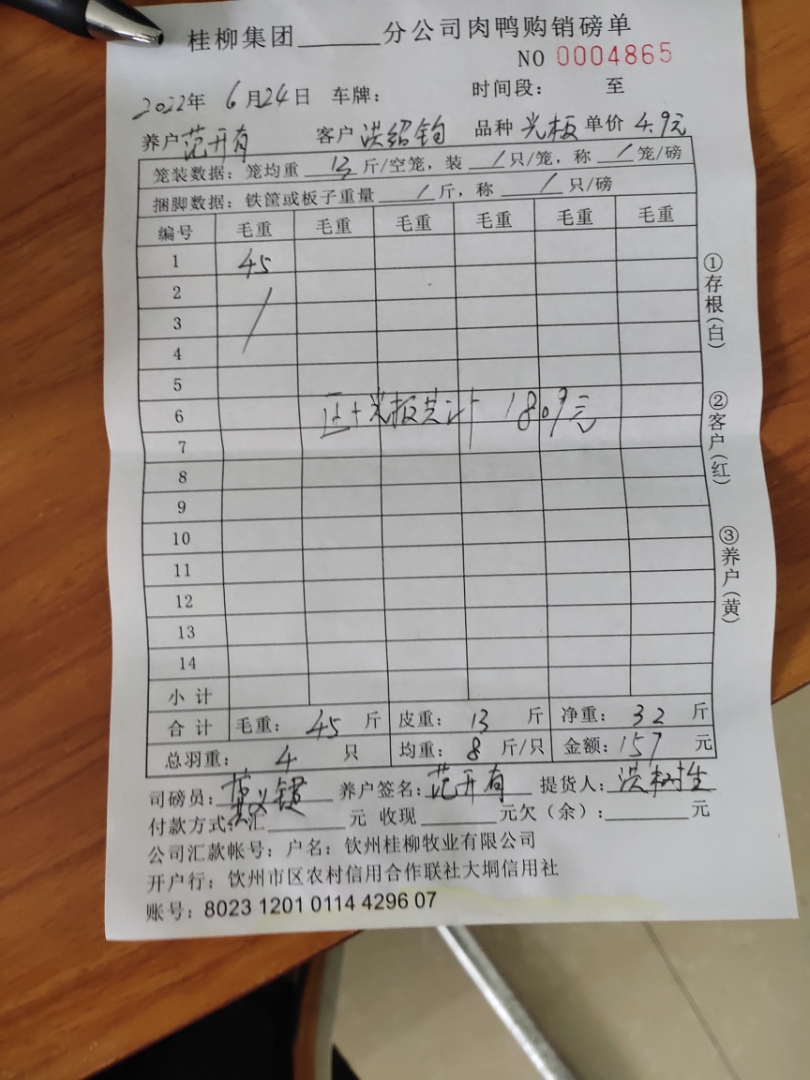 桂柳集团______分公司肉鸭购销磅单
NO 0004865
2022年 6月24日 车牌: 时间段: 至
养户 范开有 客户 洪绍钧 品种 光板 单价 4.9元
笼装数据: 笼均重 13 斤/空笼, 装 / 只/笼, 称 / 笼/磅
捆脚数据: 铁筐或板子重量 / 斤, 称 / 只/磅
编号 毛重 毛重 毛重 毛重 毛重 毛重
1 45
2 /
3
4
5
6 正+光板共计 1809元
7
8
9
10
11
12
13
14
小计
合计 毛重: 45 斤 皮重: 13 斤 净重: 32 斤
总羽重: 4 只 均重: 8 斤/只 金额: 157 元
司磅员: 养户签名: 范开有 提货人: 洪
付款方式: 汇______元 收现______元欠(余):______元
公司汇款帐号: 户名: 钦州桂柳牧业有限公司
开户行: 钦州市区农村信用合作联社大垌信用社
账号: 8023 1201 0114 4296 07
①存根(白)
②客户(红)
③养户(黄)